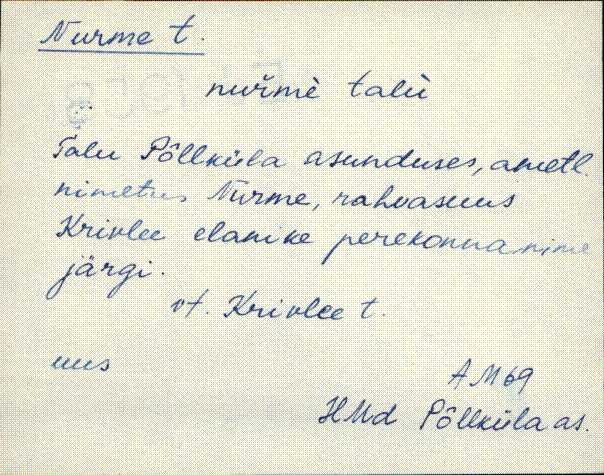 Nurme t.
nuřmè talù
Talu Põllküla asunduses, ametl.
nimetus Nurme, rahvasuus
Krivlee elanike perekonnanime
järgi.
vt. Krivlee t.
uus
AM69
HMd Põllküla as.